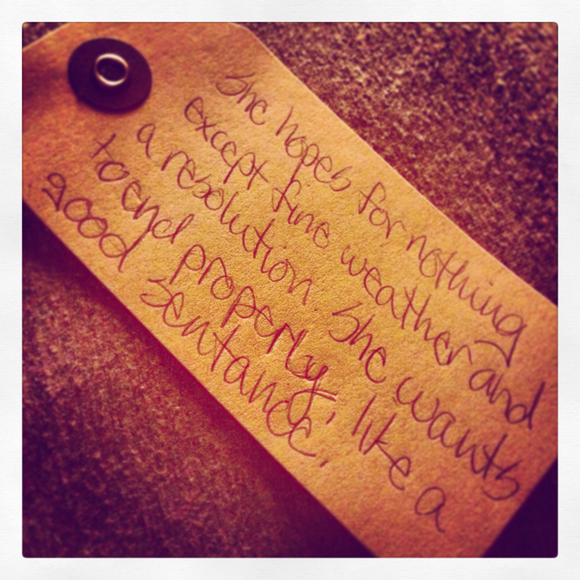 She hopes for nothing
except fine weather and
a resolution. She wants
to end properly, like a
good sentance.